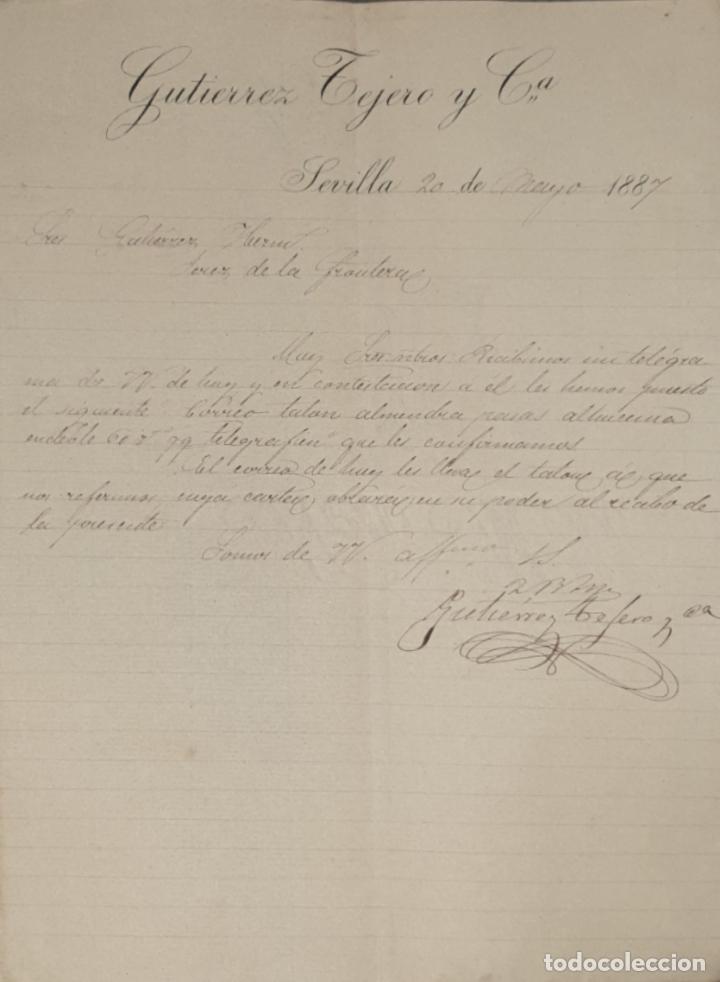 Gutierrez Tejero y Cª
Sevilla 20 de Mayo 1887
Sres Gutiérrez Herm.
Jerez de la Frontera
Muy Sres ntros: Recibimos su telégra
ma de VV. de hoy y en contestacion a el les hemos puesto
el siguiente Correo talon almendra pasas alhucema
60 qq telegrafien que les confirmamos
El correo de hoy les lleva el talon á que
nos referimos, cuya carta obrara en su poder al recibo de
la presente
Somos de VV. affmos SS.
Q B S M
Gutiérrez Tejero y Cª
todocoleccion